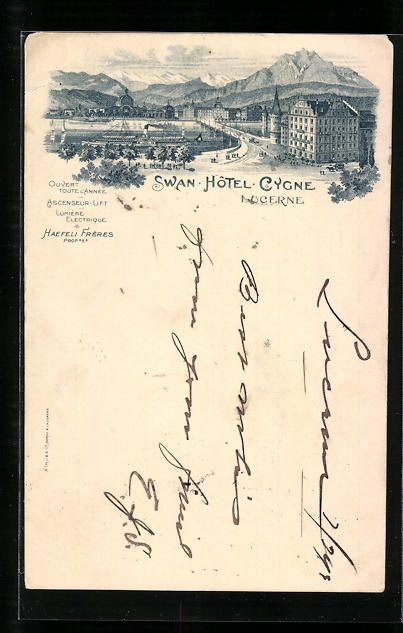 SWAN-HÔTEL-CYGNE
LUCERNE
OUVERT
TOUTE L'ANNÉE
ASCENSEUR-LIFT
LUMIÈRE
ÉLECTRIQUE
HAEFELI FRÈRES
PROP^RS
Lucerne
Best wishes
from your friend